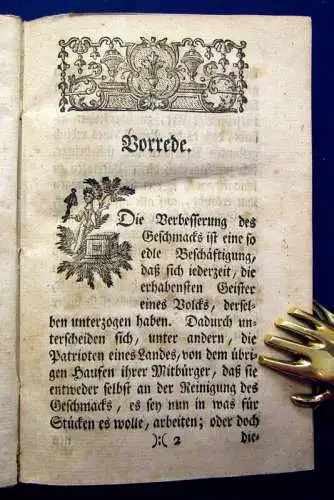 Vorrede.
Die Verbesserung des
Geschmacks ist eine so
edle Beschäftigung,
daß sich jederzeit, die
erhabensten Geister
eines Volcks, dersel-
ben unterzogen haben. Dadurch un-
terscheiden sich, unter andern, die
Patrioten eines Landes, von dem übri-
gen Haufen ihrer Mitbürger, daß sie
entweder selbst an der Reinigung des
Geschmacks, es sey nun in was für
Stücken es wolle, arbeiten; oder doch
):( 2 die-